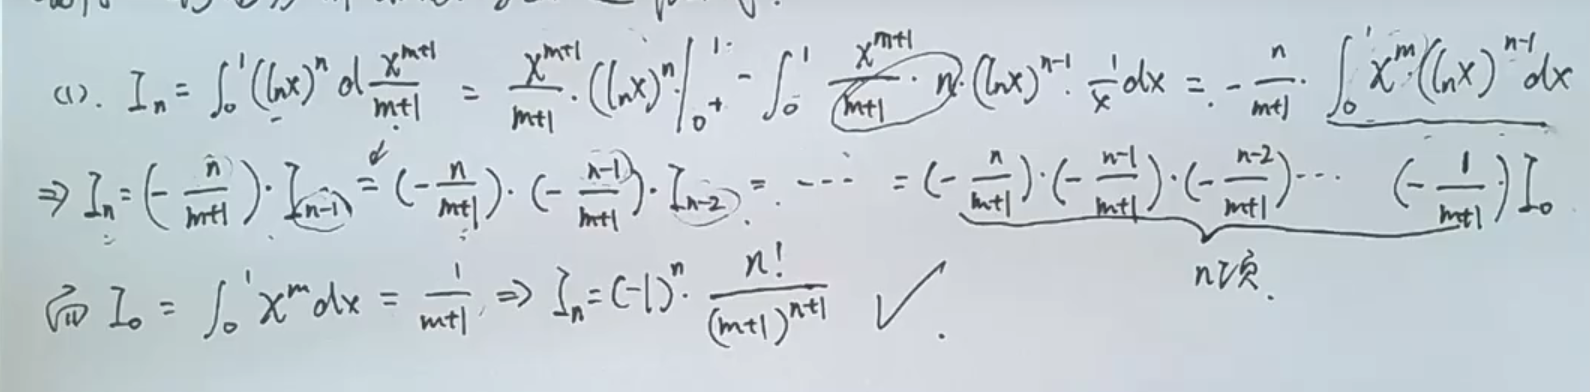 (1). Iₙ = ∫₀¹ (lnx)ⁿ d x^(m+1)/(m+1) = x^(m+1)/(m+1) · (lnx)ⁿ |₀₊¹ - ∫₀¹ x^(m+1)/(m+1) · n · (lnx)^(n-1) · 1/x dx = - n/(m+1) · ∫₀¹ x^m (lnx)^(n-1) dx
⇒ Iₙ = (- n/(m+1)) · Iₙ₋₁ = (- n/(m+1)) · (- (n-1)/(m+1)) · Iₙ₋₂ = ⋯ = (- n/(m+1)) · (- (n-1)/(m+1)) · (- (n-2)/(m+1)) ⋯ (- 1/(m+1)) I₀
n项.
而 I₀ = ∫₀¹ x^m dx = 1/(m+1) ⇒ Iₙ = (-1)ⁿ · n!/(m+1)^(n+1) ✓.